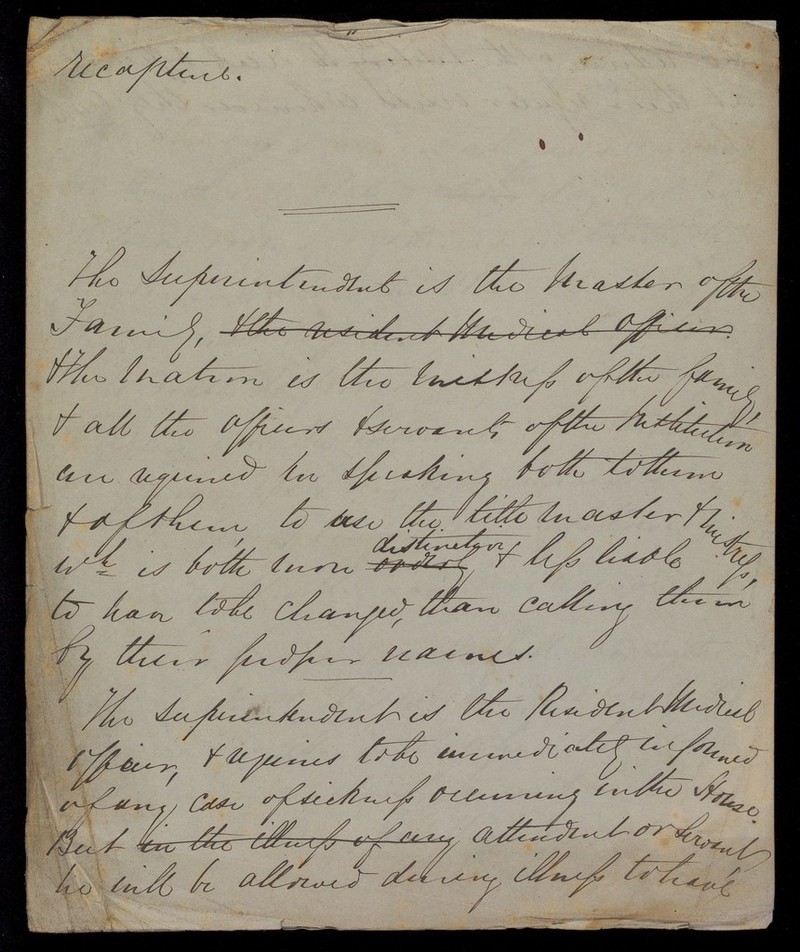 recapture.
The Superintendent is the Master of the
Family, & the resident Medical Officer.
& The Matron is the Mistress of the family,
& all the officers & servants of the Institution
are required in speaking both to them
& of them, to use the title Master & Mistress,
wh is both more orderly distinctive & less liable
to have to be changed, than calling them
by their proper names.
The Superintendent is the Resident Medical
Officer, & requires to be immediately informed
of any case of sickness occurring in the House.
But in the illness of any attendant or Servant
he will be allowed during illness to have